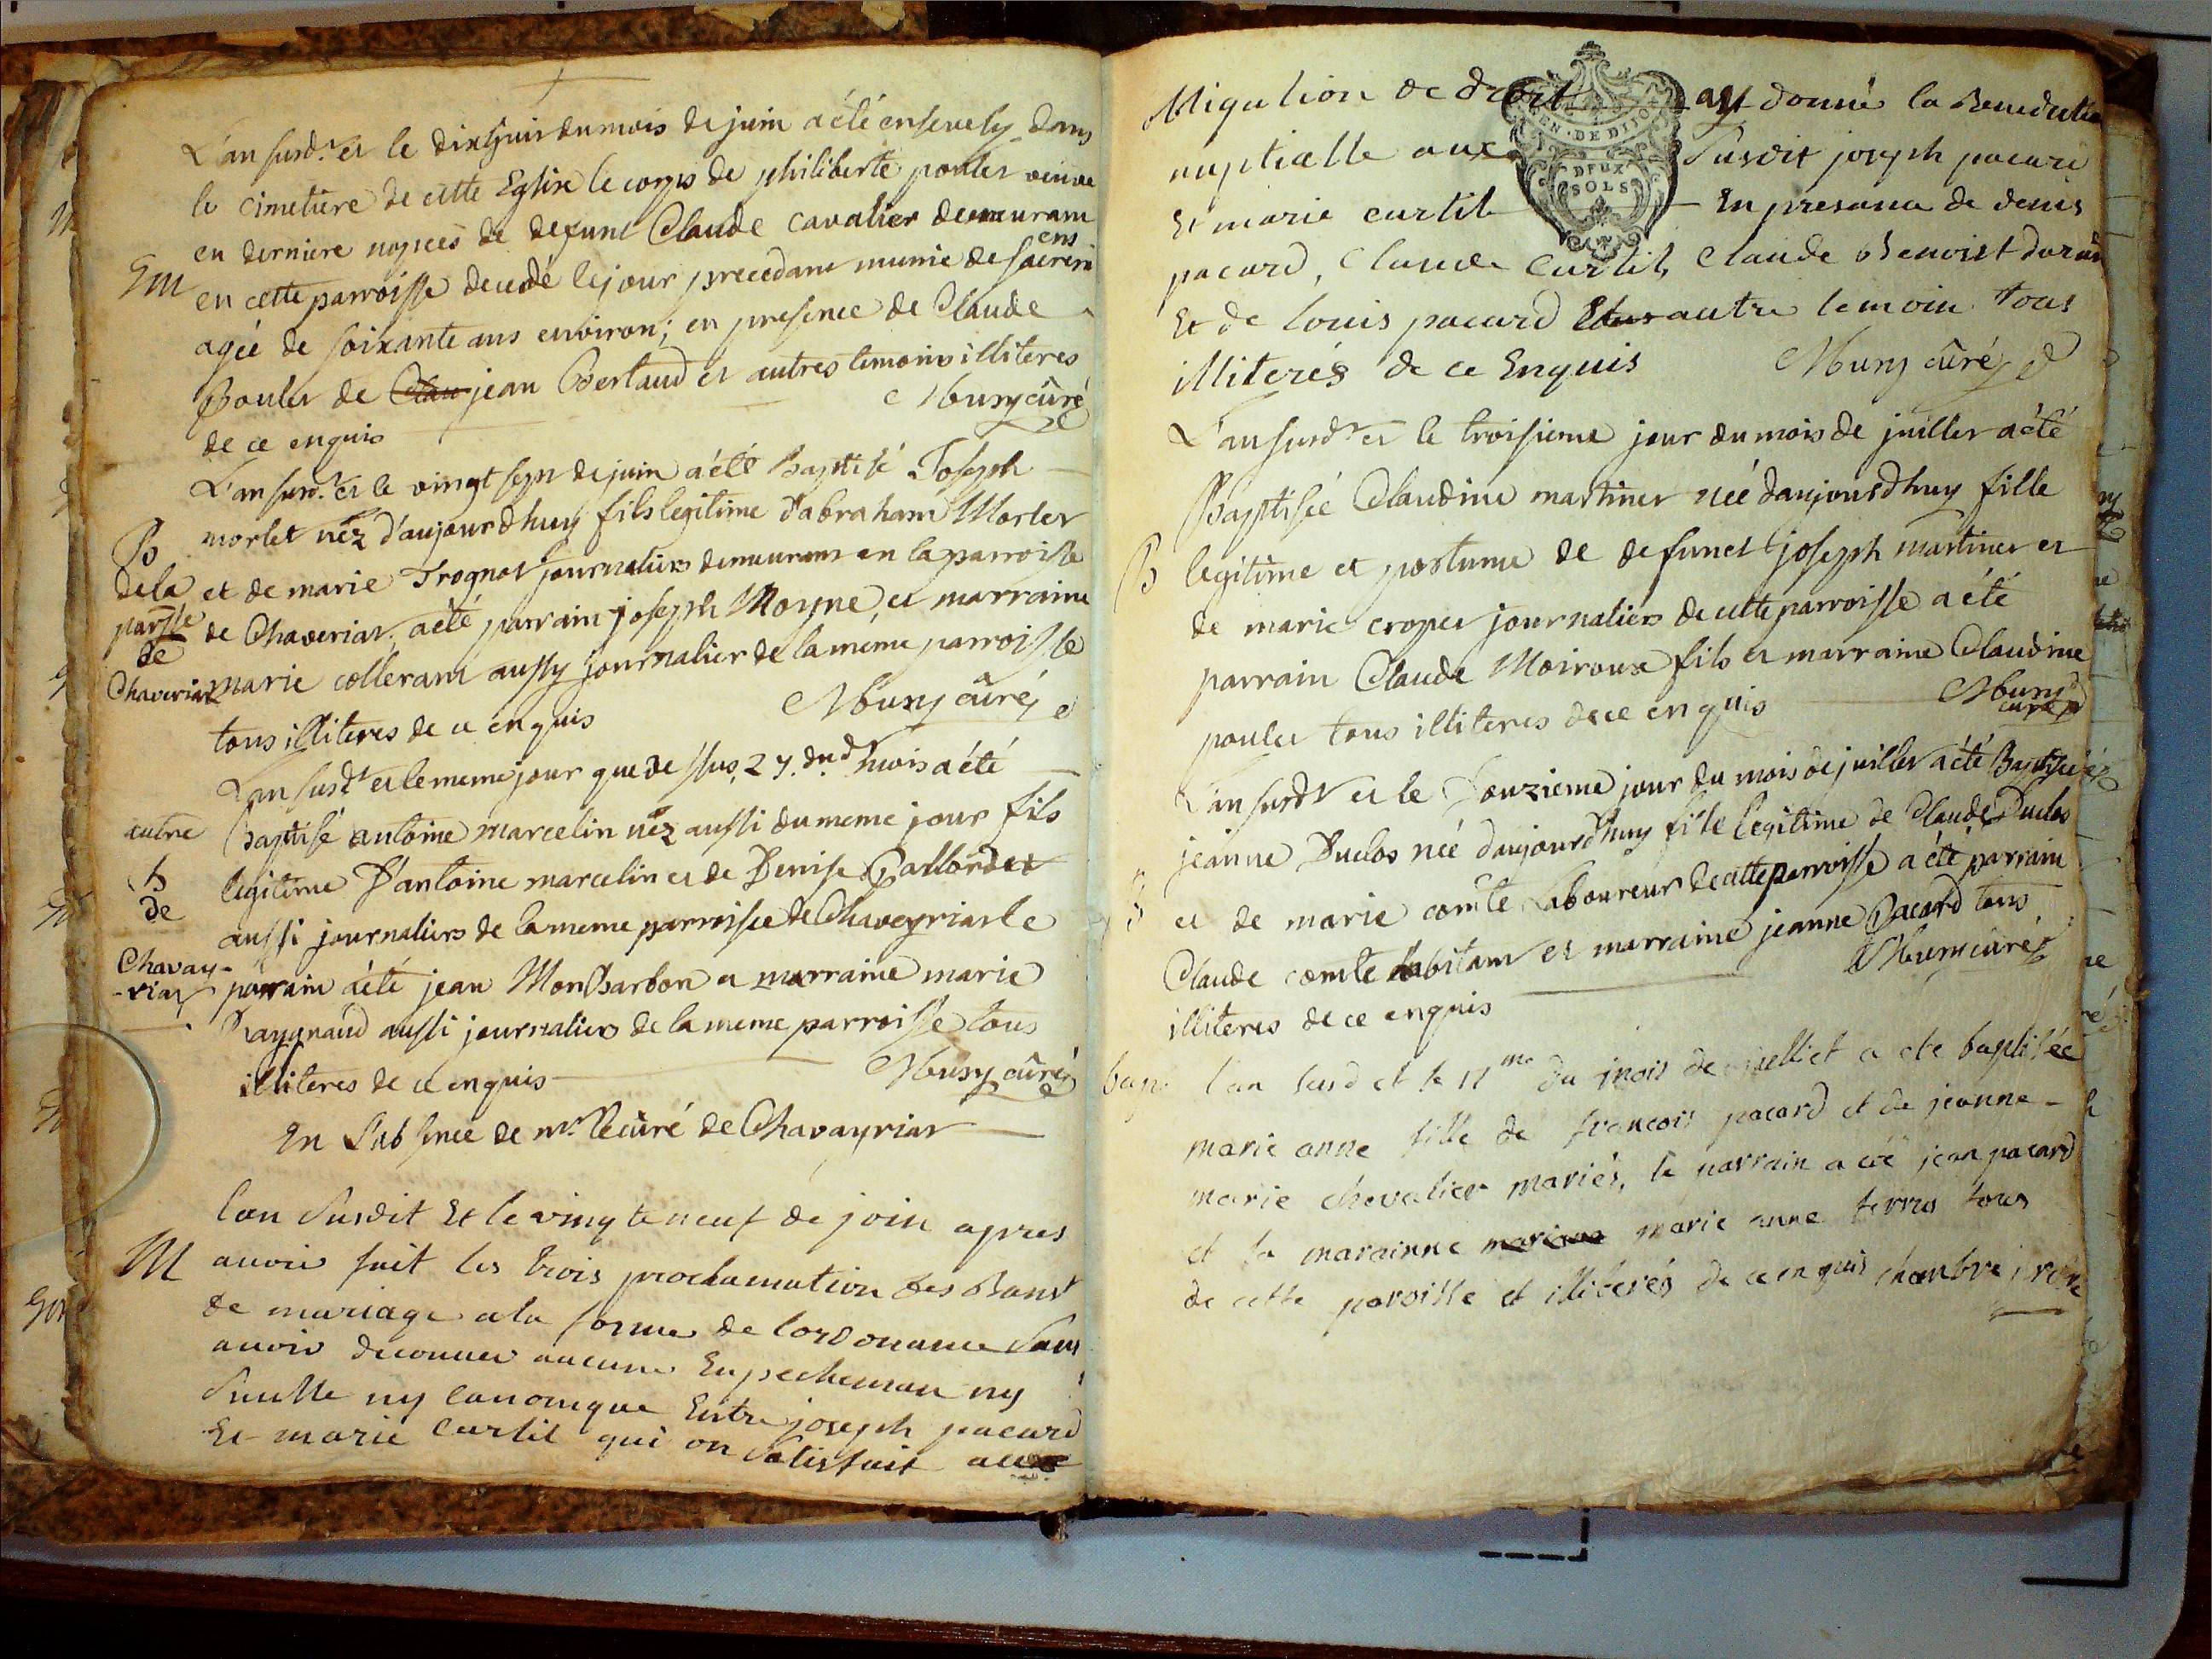 L'an susd.t et le dixhuit du mois de juin a été ensevely dans
le cimetiere de cette Eglise le corps de philiberte poulet veuve
en derniere nopces de defunt Claude Cavalier demeurant
Em en cette parroisse decedé le jour precedant munie de sacrem
ens
agée de soixante ans environ; en presence de Claude
Poulet de Clau jean Bertaud et autres temoins illiteres
de ce enquis Mbury curé
L'an susd.t et le vingt sept de juin a été Baptisé Joseph
morlet néz d'aujourdhuy fils legitime d'abraham Morlet
B
de la
parsse
de
Chaveriat
et de marie Trognot journaliers demeurans en la parroisse
de Chaveriat, a été parrain joseph Moyne et marraine
marie collerant aussy journalier de la même parroisse
tous illiteres de ce enquis Mbury curé
L'an susd.t et le meme jour que dessus 27. dud. mois a été
autre
B
de
Chavay-
-riat
Baptisé antoine marcelin néz aussi du meme jour fils
legitime D'antoine marcelin et de Denise
aussi journaliers de la meme parroisse de Chaveyriat le
parrain a été jean Monbarbon et marraine marie
Raygnaud aussi journaliers de la meme parroisse tous
illiteres de ce enquis Mbury curé
En L'absence de mr. le curé de Chavayriat
lan Susdit Et le vingt e neuf de join apres
M avoir fait les trois proclamation des Bans
de mariage a la forme de lordonance sans
avoir decouver aucune Enpecheman ny
Suille ny canonique Entre joseph pacard
Et marie Curtil qui on satisfait aux
obligation de droit ay donné la Benediction
nuptialle aux Susdit joseph pacard
Et marie curtil En presance de denis
pacard, Claude Curtil, Claude Benoist durand
Et de louis pacard autre temoin tous
illiterés de ce Enquis Mbury curé
GEN. DE DIJON
DEUX
SOLS
L'an susd.t et le troisieme jour du mois de juillet a été
Baptisée Claudine martinet née d'aujourdhuy fille
B legitime et postume de defunct joseph martinet et
de marie cropet journaliers de cette parroisse a été
parrain Claude Moiroux fils et marraine Claudine
poulet tous illiteres de ce enquis Mbury
curé
L'an susd.t et le Douzieme jour du mois de juillet a été Baptisée
jeanne Duclos née d'aujourdhuy fille legitime de Claude Duclos
B et de marie comte Laboureur de cette parroisse a été parrain
Claude comte habitant et marraine jeanne Pacard tous
illiteres de ce enquis Mbury curé
bap. l'an susd et le 17me du mois de juelliet a ete baptisée
marie anne fille de francois pacard et de jeanne-
marie chevalier mariés, le parrain a été jean pacard
et la marainne mariane marie anne terrus tous
de cette paroisse et illiterés de ce enquis